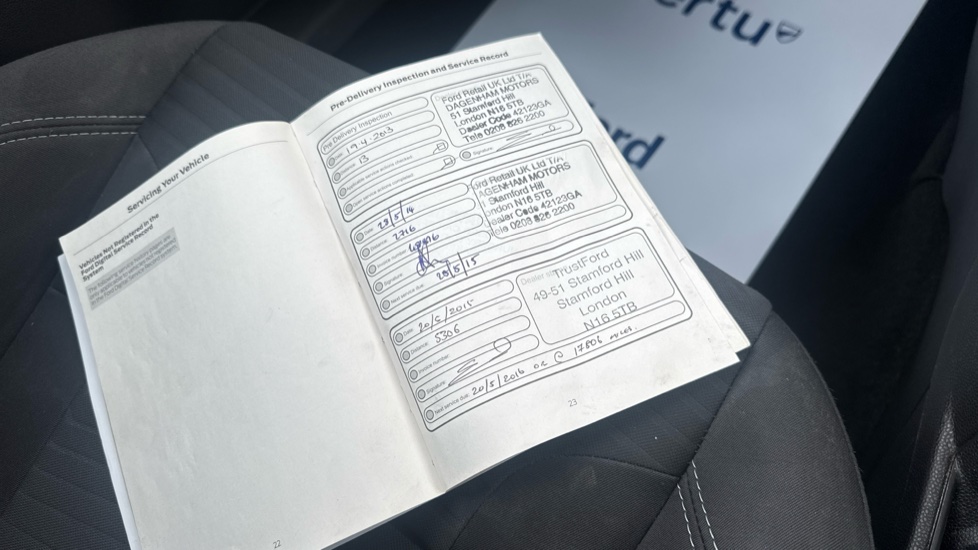 ertu
ord
Servicing Your Vehicle
Vehicles Not Registered in the
Ford Digital Service Record
System
22
Pre-Delivery Inspection and Service Record
Pre Delivery Inspection
Date: 19.4.2013
13
Signature:
Ford Retail UK Ltd T/A
DAGENHAM MOTORS
51 Stamford Hill
London N16 5TB
Dealer Code 42123GA
Tele 0208 826 2200
Date: 28/5/14
Distance: 2716
Invoice number:
Signature:
Next service due: 28/5/15
ord Retail UK Ltd T/A
AGENHAM MOTORS
1 Stamford Hill
ondon N16 5TB
ealer Code 42123GA
ele 0208 826 2200
Date: 20/5/2015
Distance: 5306
Invoice number:
Signature:
Next service due: 20/5/2016 or @ 17806 miles.
TrustFord
49-51 Stamford Hill
Stamford Hill
London
N16 5TB
23